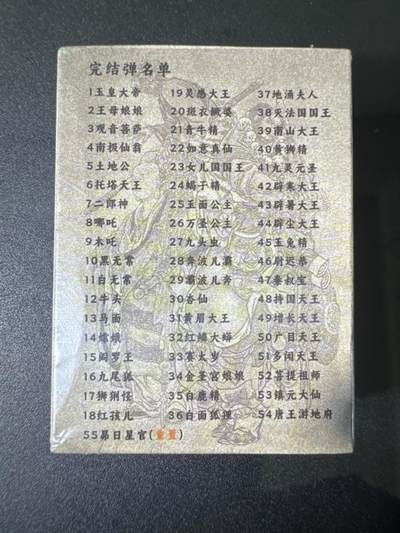 完结弹名单
1玉皇大帝
2王母娘娘
3观音菩萨
4南极仙翁
5土地公
6托塔天王
7二郎神
8哪吒
9木吒
10黑无常
11白无常
12牛头
13马面
14嫦娥
15阎罗王
16九尾狐
17狮猁怪
18红孩儿
19灵感大王
20斑衣鳜婆
21青牛精
22如意真仙
23女儿国国王
24蝎子精
25玉面公主
26万圣公主
27九头虫
28奔波儿灞
29灞波儿奔
30杏仙
31黄眉大王
32红鳞大蟒
33赛太岁
34金圣宫娘娘
35白鹿精
36白面狐狸
37地涌夫人
38灭法国国王
39南山大王
40黄狮精
41九灵元圣
42辟寒大王
43辟暑大王
44辟尘大王
45玉兔精
46尉迟恭
47秦叔宝
48持国天王
49增长天王
50广目天王
51多闻天王
52菩提祖师
53镇元大仙
54唐王游地府
55昴日星官(重置)